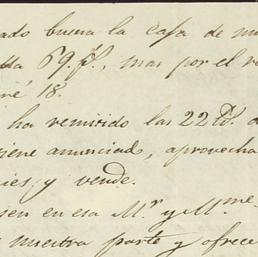 ado buena la casa de
69 p.s, mas por el
né 18.
ha remitido las 22
iene anunciado, aprovecha
ies, y vende.
sen en esa M.r y M.me
nuestra parte y ofrece